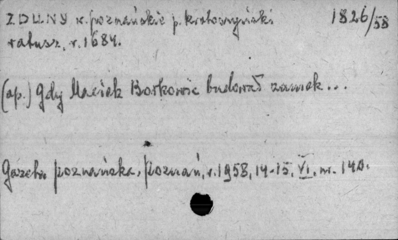 ZDUNY w. poznańskie p. krotoszyński 1826/58
ratusz, r. 1684.
(ap.) Gdy Maciek Borkowic budował zamek...
Gazeta poznańska, Poznań, r. 1958, 14-15. VI. nr. 140.